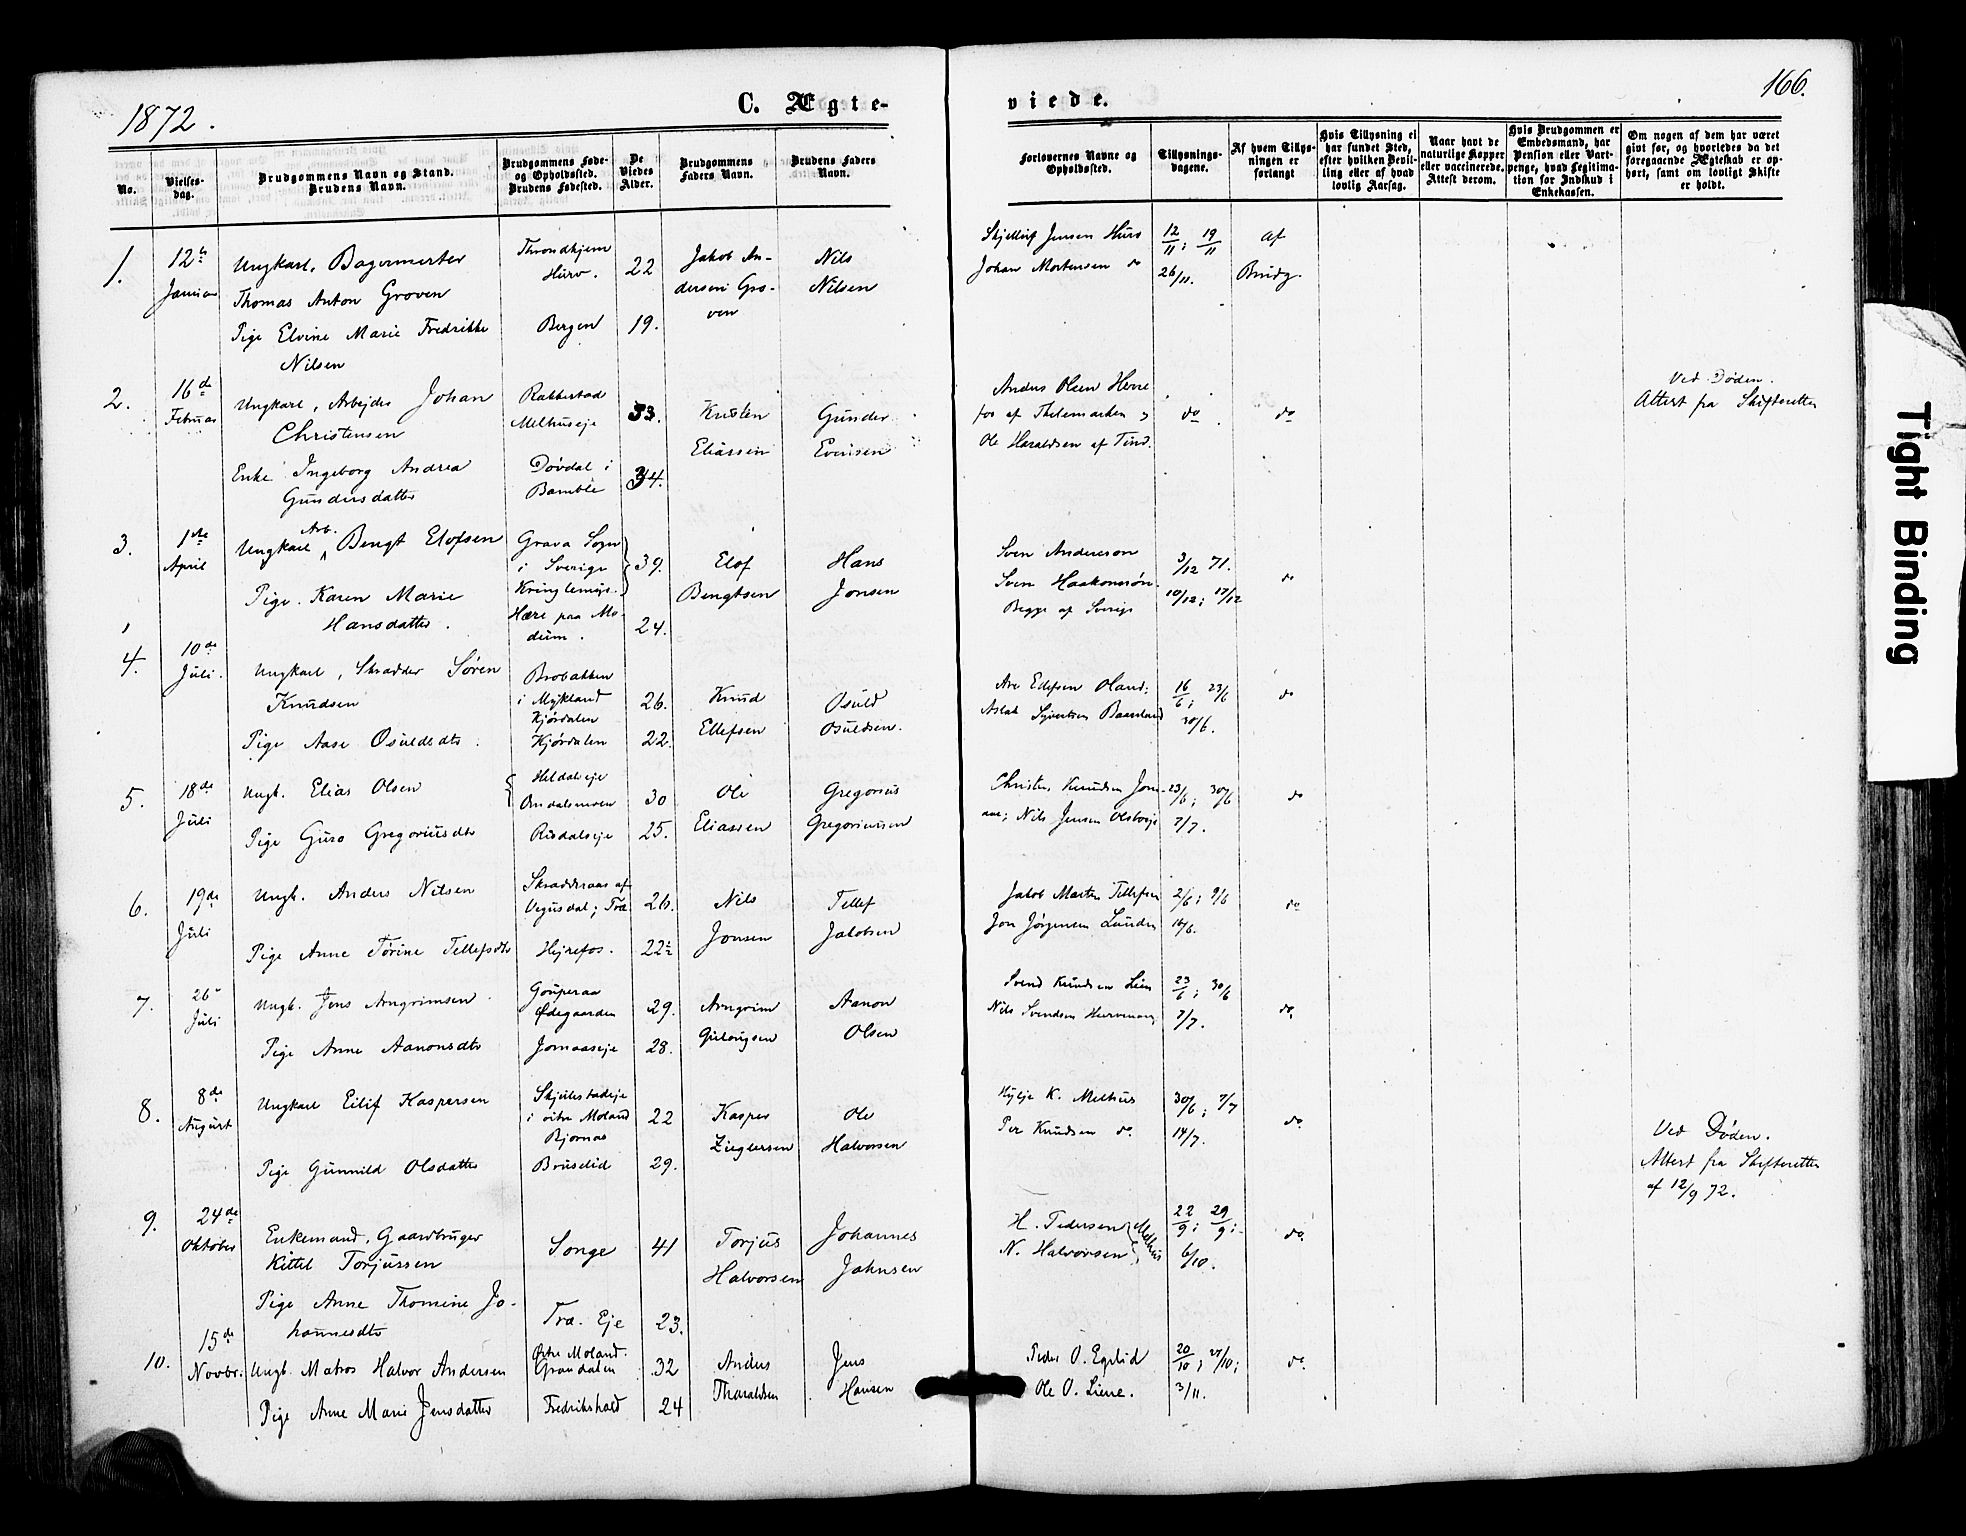 1872.
C. Ægte-
viede.
166.
No.
Vielses-
dag.
Brudgommens Navn og Stand.
Brudens Navn.
Brudgommens Føde-
og Opholdssted.
Brudens Fødested.
De
Viedes
Alder.
Brudgommens
Faders Navn.
Brudens Faders
Navn.
Forlovernes Navne og
Opholdssted.
Tillysnings-
dagene.
Af hvem Tillys-
ningen er
forlangt
Hvis Tillysning ei
har fundet Sted,
efter hvilken Bevil-
ling eller af hvad
lovlig Aarsag.
Naar havt de
naturlige Kopper
eller vaccinerede.
Attest derom.
Hvis Brudgommen er
Embedsmand, har
Pension eller Vart-
penge, hvad Legitima-
tion for Indskud i
Enkekassen.
Om nogen af dem har været
givt før, og hvorledes da det
foregaaende Ægteskab er op-
hørt, samt om lovligt Skifte
er holdt.
1.
12te
Januar
Ungkarl, Bagermester
Thomas Anton Groven
Pige Elvine Marie Fredrikke
Nilsen
Throndhjem
Bergen
22
19.
Jakob An-
dersen Gro-
ven
Nils
Nilsen
Jensen
Johan Mortensen do
12/11; 19/11
26/11.
Af
Brudg.
2.
16de
Februar
Ungkarl, Arbejder Johan
Christensen
Enke Ingeborg Andrea
Gundersdatter
Melhuseje
Døvdal i
Bamble
33.
34.
Kristen
Eliassen
Gunder
Evensen
Anders Olsen
fos af Thelemarken og
Ole Haraldsen af Tind.
do
do
Ved Døden.
Attest fra Skifteretten
3.
1ste
April
Arb.
Ungkarl Bengt Elofsen
Pige Karen Marie
Hansdatter.
Grava Sogn
i Sverige
Hære paa Mo-
dum.
39.
24.
Elof
Bengtsen
Hans
Jonsen
Sven Anderson
Sven Haakonsøn.
Begge af Sverige
3/12 71.
10/12; 17/12
do
4.
10de
Juli.
Ungkarl, Skrædder Søren
Knudsen
Pige Aase Osuldsdtr.
Brobakken
i Mykland
Kjørdalen
Kjørdalen
26.
22.
Knud
Ellefsen
Osuld
Osuldsen.
Are Edefsen Oland;
Aslak
16/6; 23/6
30/6.
do
5.
18de
Juli
Ungk. Elias Olsen
Pige Guro Gregoriusdtr
Heldalseje
Risdalseje
30
25.
Ole
Eliassen
Gregorius
Gregoriussen
Christen Knudsen Jom-
aas; Nils Jensen
23/6; 30/6
7/7.
do
6.
19de
Juli
Ungk. Anders Nilsen
Pige Anne Tørine Tellefsdtr
Skrædderaas af
Vegusdal; Træ
Hejrefos.
26.
22½
Nils
Jonsen
Tellef
Jakobsen
Jakob Martin Tellefsen
Jon Jørgensen Lunden
2/6; 9/6
16/6.
do
7.
26de
Juli
Ungk. Jens Arngrimsen
Pige Anne Aanonsdtr
Gouperaa
Ødegaarden
Jomaaseje
29.
28.
Arngrim
Aanon
Olsen
Svend Knudsen Lien
Nils Svendsen
23/6; 30/6
7/7.
do
8.
8de
August
Ungkarl Eilif Kaspersen
Pige Gunnild Olsdatter
Skjulestadeje
i østre Moland
Bjørnaas
Bruselid
22
29.
Kasper
Zieglersen
Ole
Halvorsen
K. Melhus
Per Knudsen do.
30/6; 7/7
14/7.
do
9.
24de
Oktober
Enkemand, Gaardbruger
Kittil Torjussen
Pige Anne Thomine Jo-
hannesdtr
Songe
Træ. Eje
41
23.
Torjus
Halvorsen
Johannes
Johnsen
H. Pedersen
N. Halvorsen
Melhus
22/9; 29/9;
6/10.
do.
Ved Døden.
Attest fra Skifteretten
af 12/9 72.
10.
15de
Novbr.
Ungk. Matros Halvor Andersen
Pige Anne Marie Jensdatter
Østre Moland.
Grændalen
Fredrikshald
32
24
Anders
Tharaldsen
Jens
Hansen
Peder O. Egelid
Ole O. Liene.
20/10; 27/10;
3/11.
do.
Tight Binding